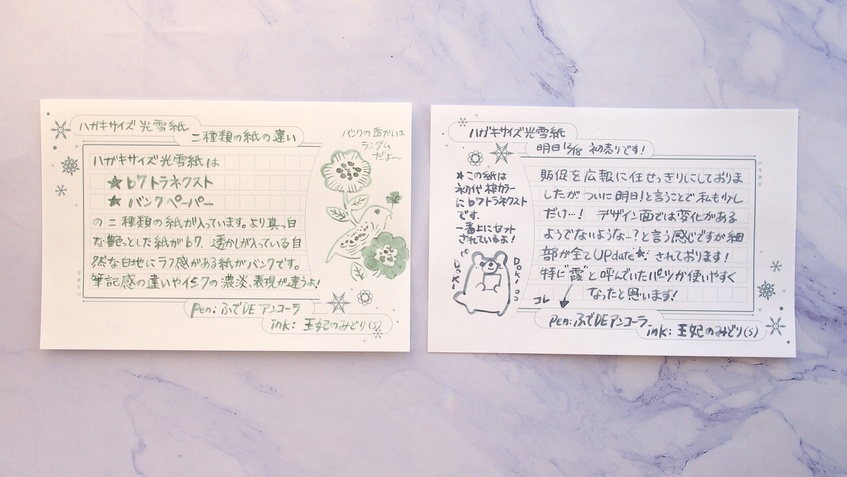 ハガキサイズ光雪紙
二種類の紙の違い
バンクの透かしは
ランダム
だよ〜
ハガキサイズ光雪紙は
★ b7トラネクスト
★ バンクペーパー
の二種類の紙が入っています。より真っ白
な艶っとした紙がb7. 透かしが入っている自
然な白地にラフ感がある紙がバンクです。
筆記感の違いやインクの濃淡、表現が違うよ!
pen: ふでDEアンコーラ
ink: 王妃のみどり(S)
ハガキサイズ光雪紙
明日12/18 初売りです!
★この紙は
初代 枠カラー
にb7トラネクスト
です.
一番上にセット
されているよ!
販促を広報に任せっきりにしておりま
したがついに明日!と言うことで私も少し
だけ…! デザイン面では変化がある
ようでないような…?と言う感じですが細
部が全とUPdate★されております!
特に"霞"と呼んでいたパーツが使いやすく
なったと思います!
コレ
DOKI
pen: ふでDEアンコーラ
ink: 王妃のみどり(S)